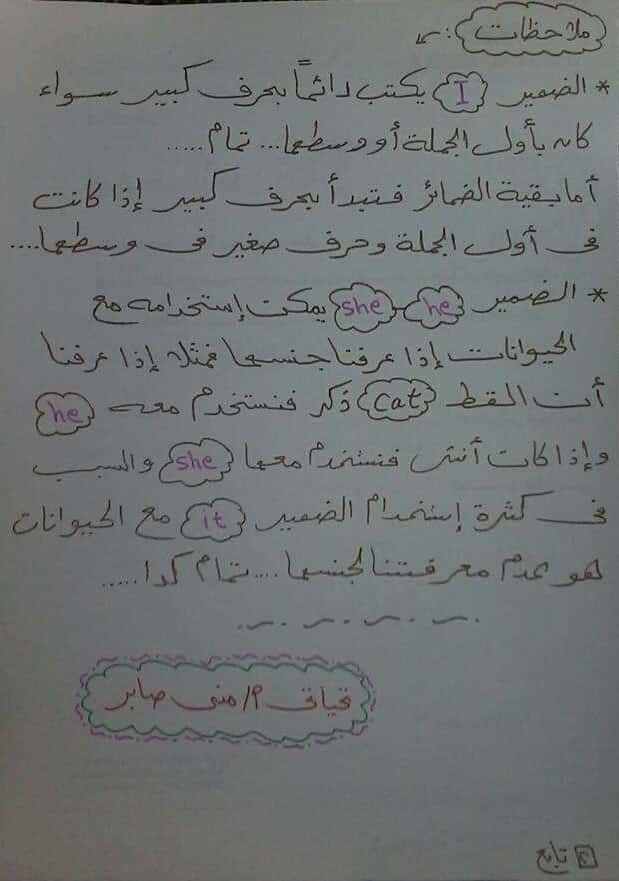 ملاحظات :
* الضمير I يكتب دائماً بحرف كبير سواء
كان بأول الجملة أو وسطها... تمام.....
أما بقية الضمائر فتبدأ بحرف كبير إذا كانت
فى أول الجملة وحرف صغير فى وسطها....
* الضمير he - she يمكن إستخدامه مع
الحيوانات إذا عرفنا جنسها فمثلا إذا عرفنا
أن القط cat ذكر فنستخدم معه he
وإذا كانت أنثى فنستخدم معها she والسبب
فى كثرة إستخدام الضمير it مع الحيوانات
هو عدم معرفتنا لجنسها.... تمام كدا.....
تحياتى م/ منى صابر
تابع